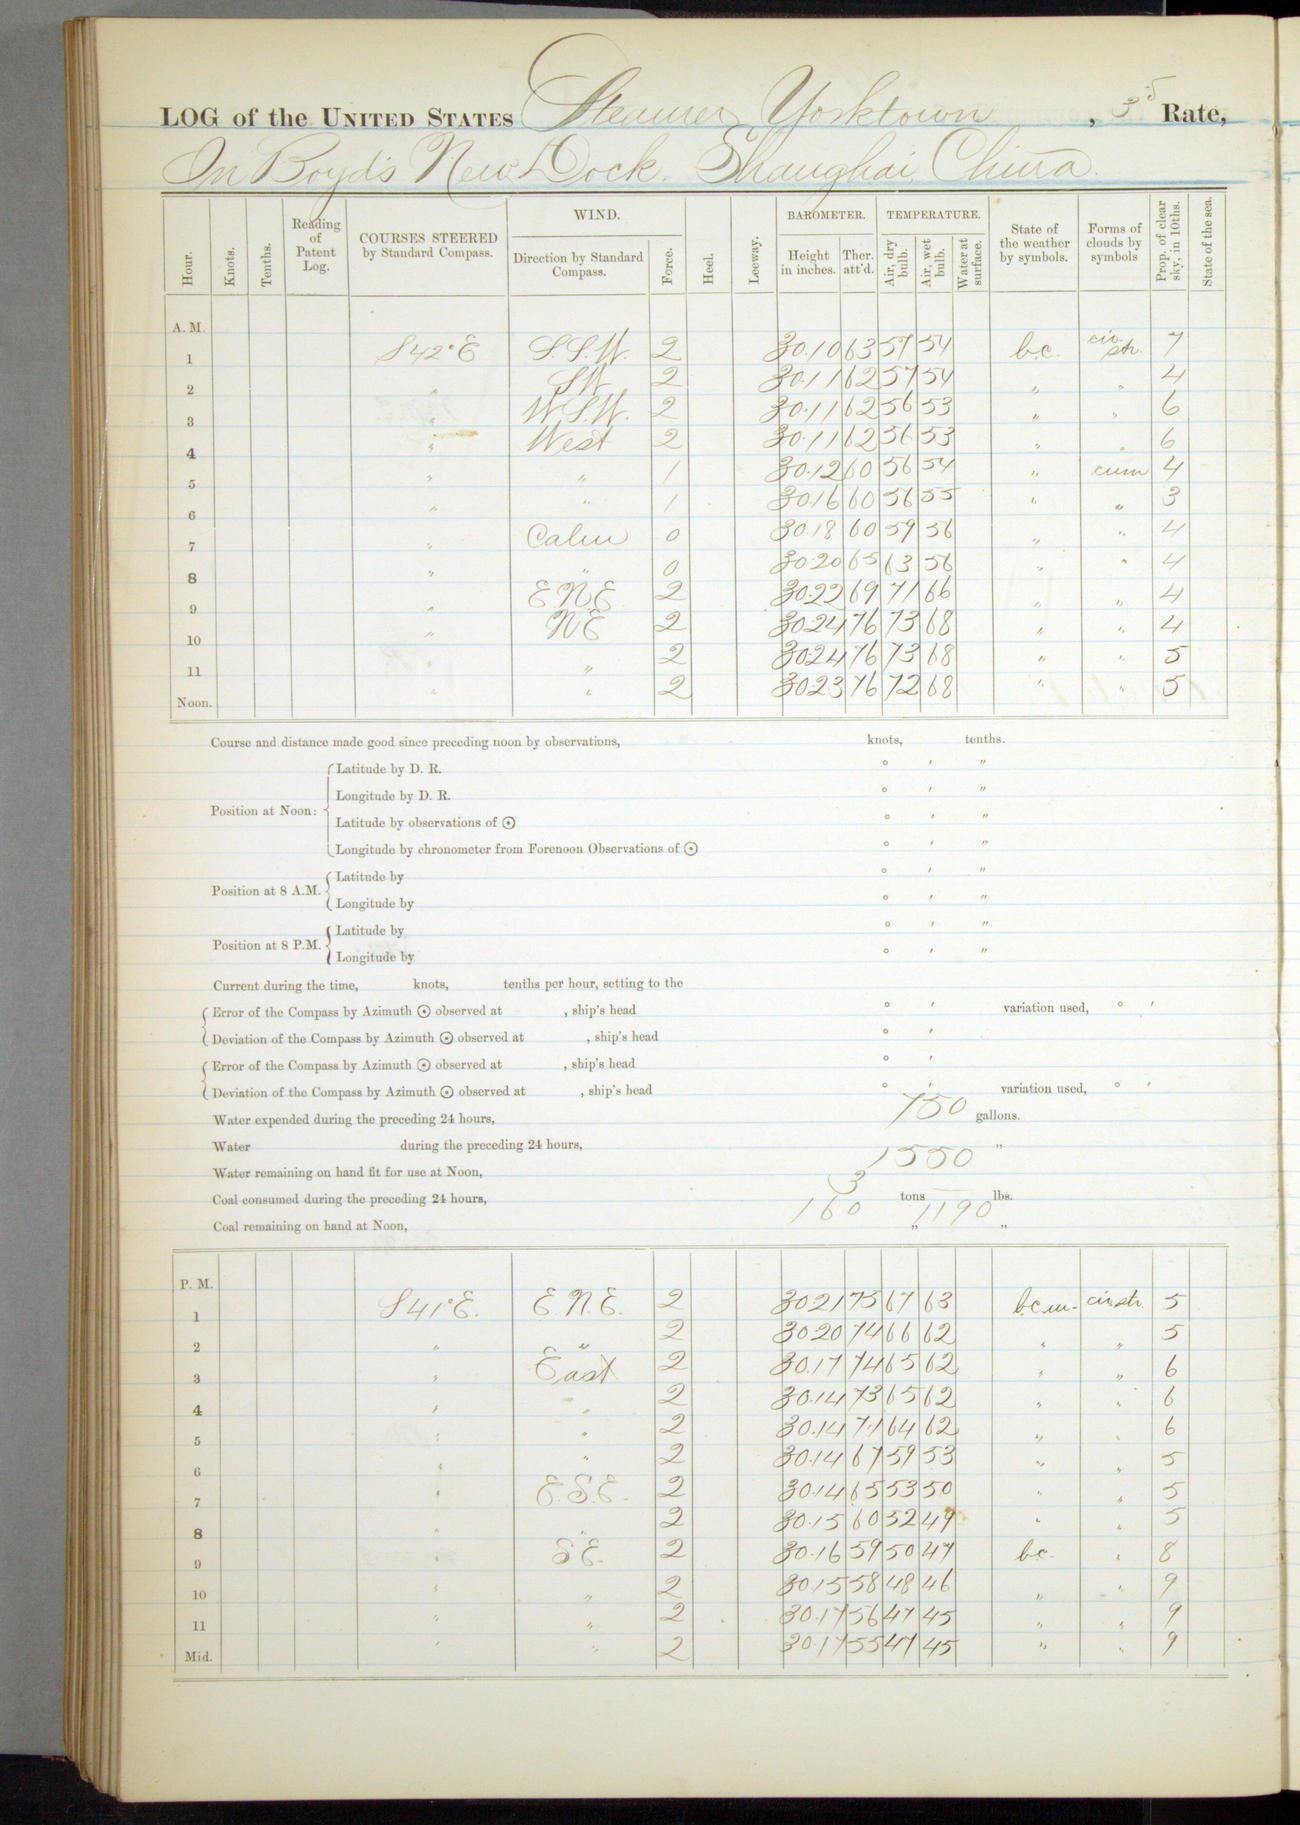 LOG of the UNITED STATES Steamer Yorktown, 3d Rate,
In Boyd's New Dock. Shanghai, China.
Hour. Knots. Tenths. Reading of Patent Log. COURSES STEERED by Standard Compass. WIND. Direction by Standard Compass. Force. Heel. Leeway. BAROMETER. Height in inches. Ther. att'd. TEMPERATURE. Air, dry bulb. Air, wet bulb. Water at surface. State of the weather by symbols. Forms of clouds by symbols Prop. of clear sky, in 10ths. State of the sea.
A. M.
1 S42°E S.S.W. 2 30.10 63 57 54 b.c. cir. str. 7
2 " SW 2 30.11 62 57 54 " " 4
3 " W.S.W. 2 30.11 62 56 53 " " 6
4 " West 2 30.11 62 56 53 " " 6
5 " " 1 30.12 60 56 54 " cum 4
6 " " 1 30.16 60 56 55 " " 3
7 " Calm 0 30.18 60 59 56 " " 4
8 " " 0 30.20 65 63 56 " " 4
9 " E.N.E 2 30.22 69 71 66 " " 4
10 " NE 2 30.24 76 73 68 " " 4
11 " 2 30.24 76 73 68 " " 5
Noon. " " 2 30.23 76 72 68 " " 5
Course and distance made good since preceding noon by observations, knots, tenths.
Position at Noon:
Latitude by D. R. ° ′ ″
Longitude by D. R. ° ′ ″
Latitude by observations of ☉ ° ′ ″
Longitude by chronometer from Forenoon Observations of ☉ ° ′ ″
Position at 8 A.M.
Latitude by ° ′ ″
Longitude by ° ′ ″
Position at 8 P.M.
Latitude by ° ′ ″
Longitude by ° ′ ″
Current during the time, knots, tenths per hour, setting to the
Error of the Compass by Azimuth ☉ observed at , ship's head ° ′ variation used, ° ′
Deviation of the Compass by Azimuth ☉ observed at , ship's head ° ′
Error of the Compass by Azimuth ☉ observed at , ship's head ° ′
Deviation of the Compass by Azimuth ☉ observed at , ship's head ° ′ variation used, ° ′
Water expended during the preceding 24 hours, 750 gallons.
Water during the preceding 24 hours, "
Water remaining on hand fit for use at Noon, 1550
Coal consumed during the preceding 24 hours, 3 tons — lbs.
Coal remaining on hand at Noon, 160 " 1190 "
P. M.
1 S41°E. E.N.E. 2 30.21 75 67 63 b.c.m. cir. str. 5
2 " " 2 30.20 74 66 62 " " 5
3 " East 2 30.17 74 65 62 " " 6
4 " " 2 30.14 73 65 62 " " 6
5 " " 2 30.14 71 64 62 " " 6
6 " " 2 30.14 67 59 53 " " 5
7 " E.S.E. 2 30.14 65 53 50 " " 5
8 " " 2 30.15 60 52 49 " " 5
9 " SE. 2 30.16 59 50 47 b.c. " 8
10 " " 2 30.15 58 48 46 " " 9
11 " " 2 30.17 56 47 45 " " 9
Mid. " " 2 30.17 55 47 45 " " 9